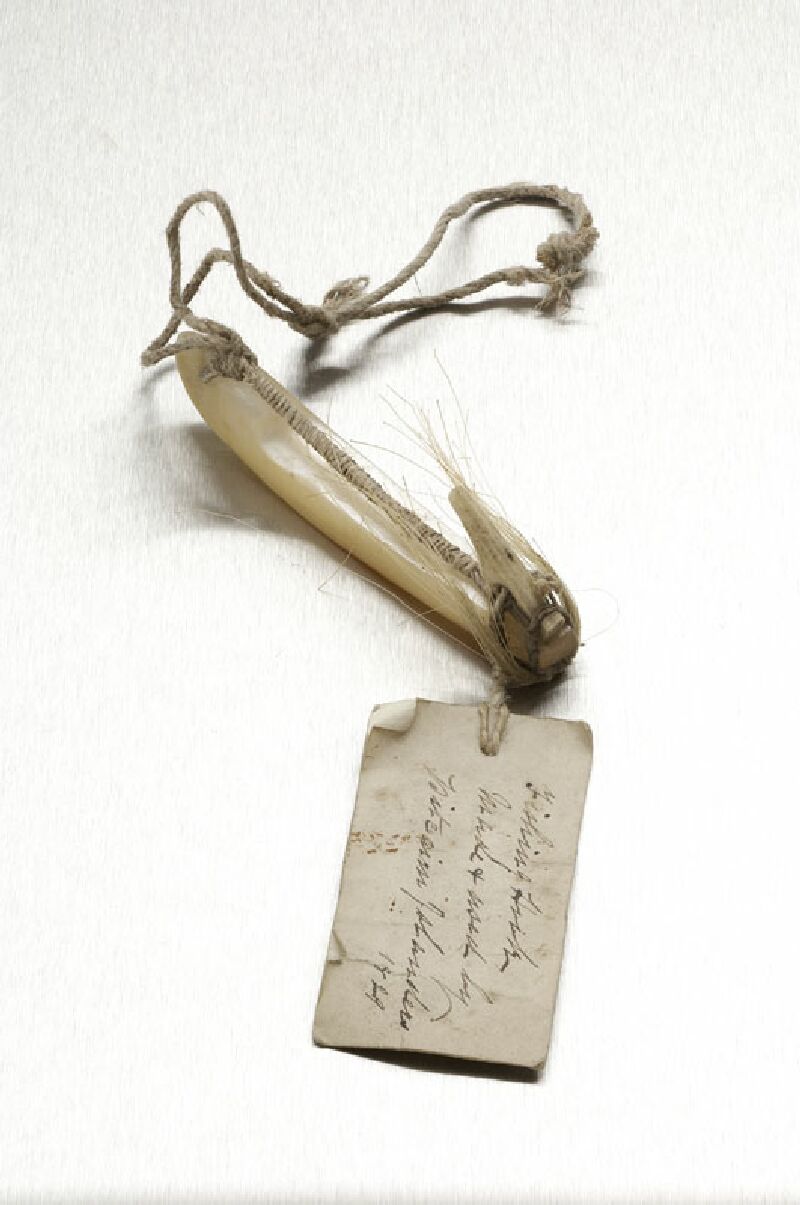 Fishing hook
Made & used by
Pitcairn Islanders
1849